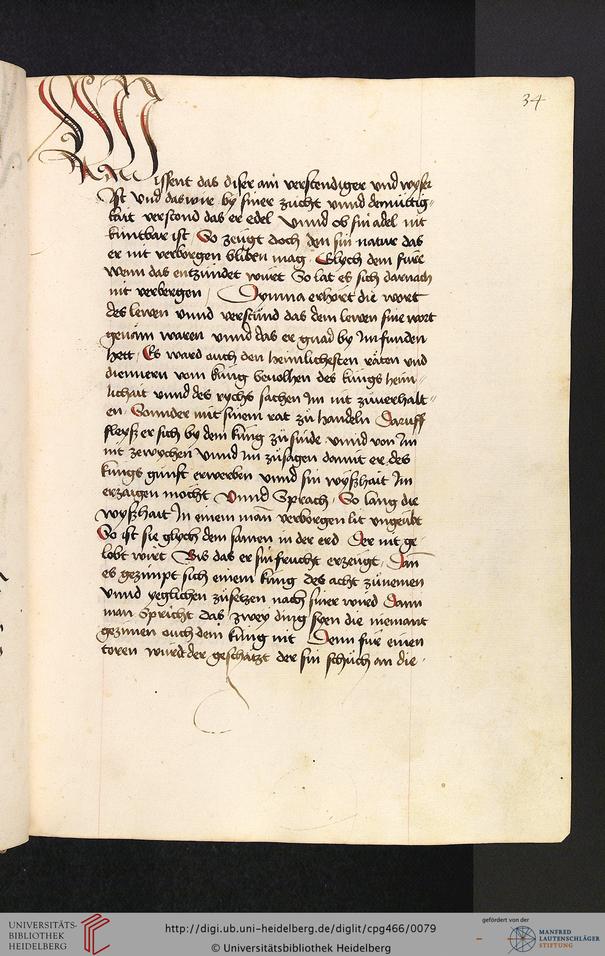 34
Wissent das diser ain verstendiger vnd wyser
Ist vnd das wie by siner zucht vnnd demuͤttig-
kait verstond das er edel vnnd ob sin adel nit
kuntbar ist So zeugt doch den sin natur das
er nit verborgen bliben mag Glych dem fuͤre
wenn das entzuͤndet wuͤrt So lat es sich darnach
nit verbergen Dymna erhoͤrt die wort
des lewen vnnd verstuͤnd das dem lewen sine wort
genaͤm waren vnnd das er gnad by Im funden
hett Es ward auch den heimlichesten raͤten vnd
dienern vom kuͤng beuolhen des kuͤngs heim-
lichait vnnd des rychs sachen Im nit zuͤuerhalt-
en Sonnder mit sinem rat zuͤ handeln Daruff
fleyß er sich by dem kuͤng zuͤ sinde vnnd von Im
nit zewychen vnnd Im zuͤsagen damit er des
kuͤngs gunst erwerben vnnd sin wyßhait Im
erzaigen moͤcht Vnnd Sprach So lang die
wyßhait In einem man verborgen lit vngeuͤbt
So ist sie glych dem samen in der erd Der nit ge-
lobt wirt Bis das er sin frucht erzeugt Dan
es gezimpt sich einem kuͤng des acht zuͤnemen
vnnd yeglichen zuͤsetzen nach siner wird Dann
man Spricht das zwey ding syen die niemant
gezimen ouch dem kuͤng nit Denn fuͤr einen
toren wuͤrd der geschaͤtzt der sin schuͤch an die
UNIVERSITÄTS-
BIBLIOTHEK
HEIDELBERG
http://digi.ub.uni-heidelberg.de/diglit/cpg466/0079
© Universitätsbibliothek Heidelberg
gefördert von der
MANFRED
LAUTENSCHLÄGER
STIFTUNG